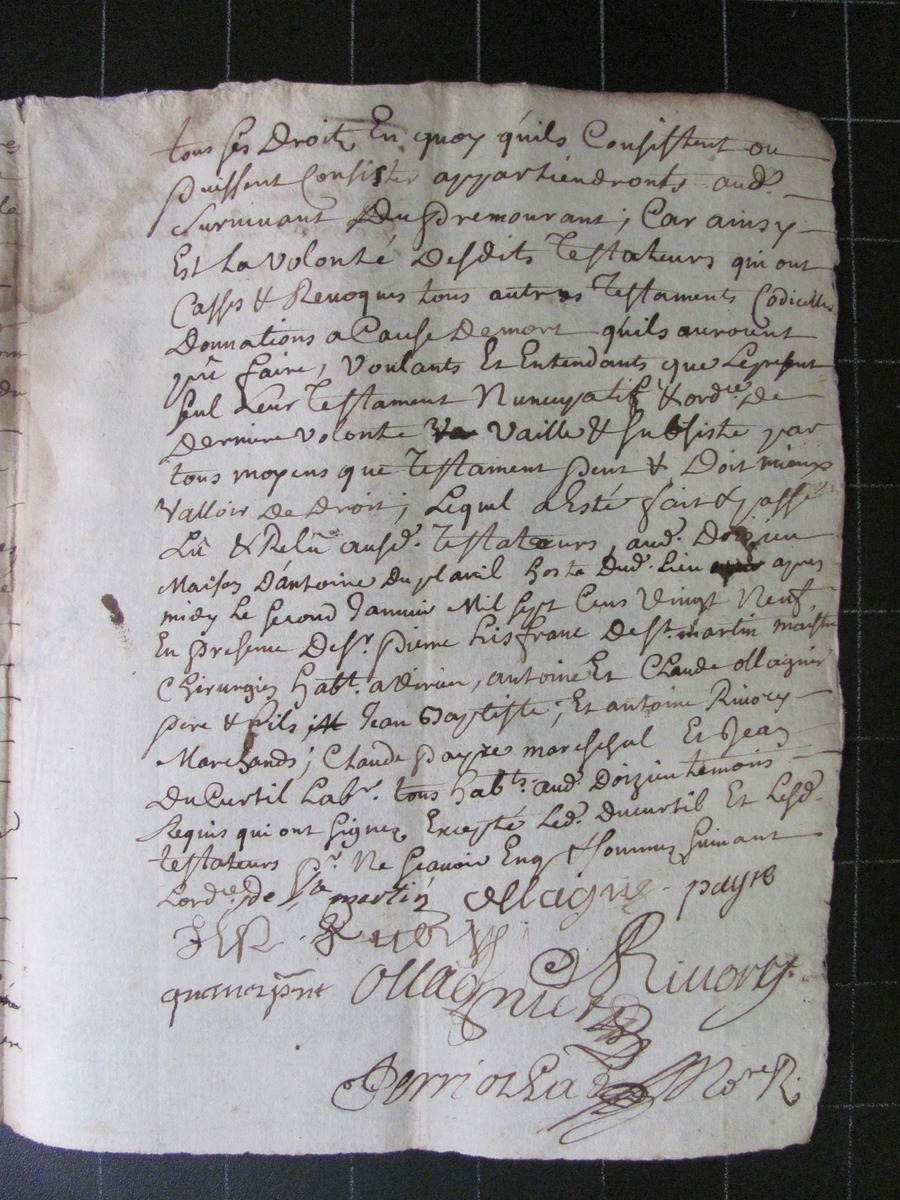 tous ses Droits En quoy qu'ils Consistent ou
puissent Consister appartiendronts aud.
Survivant Du Premourant; Car ainsy
Est La Volonté Desdits Testateurs qui ont
Casses & Revoques tous autres Testaments Codicilles
Donnations a Cause Demort qu'ils auroient
pû faire, Voulants Et Entendants que Lepresent
Seul Leur Testament Nuncupatif & ord.re De
Derniere Volonté Vaille & Subsiste par
tous moyens que Testament peut & Doit mieux
Valloir De Droit; Lequel a Esté fait & passé
Lû & Relû ausd. Testateurs, aud. Doizieu
Maison D'antoine Duplavil hoste Dud. Lieu apres
midy Le Second Janvier Mil Sept Cens Vingt Neuf,
En presence De Sr. Pierre Lisfranc De St. martin maistre
Chirurgien habt. antoine Et Claude Ollagnier
pere & fils Jean Baptiste, Et antoine Rivory
Marchands; Claude payre mareschal Et Jean
DuCurtil Labr. tous habts. aud. Doizieu temoins
Requis qui ont Signez Excepté Led. Ducurtil Et Lesd.
testateurs pr. Ne Scavoir Enq. & Sommez Suivant
Lord.ce De St martin Ollagnie payre
Ollagnier Rivory
Nore R.